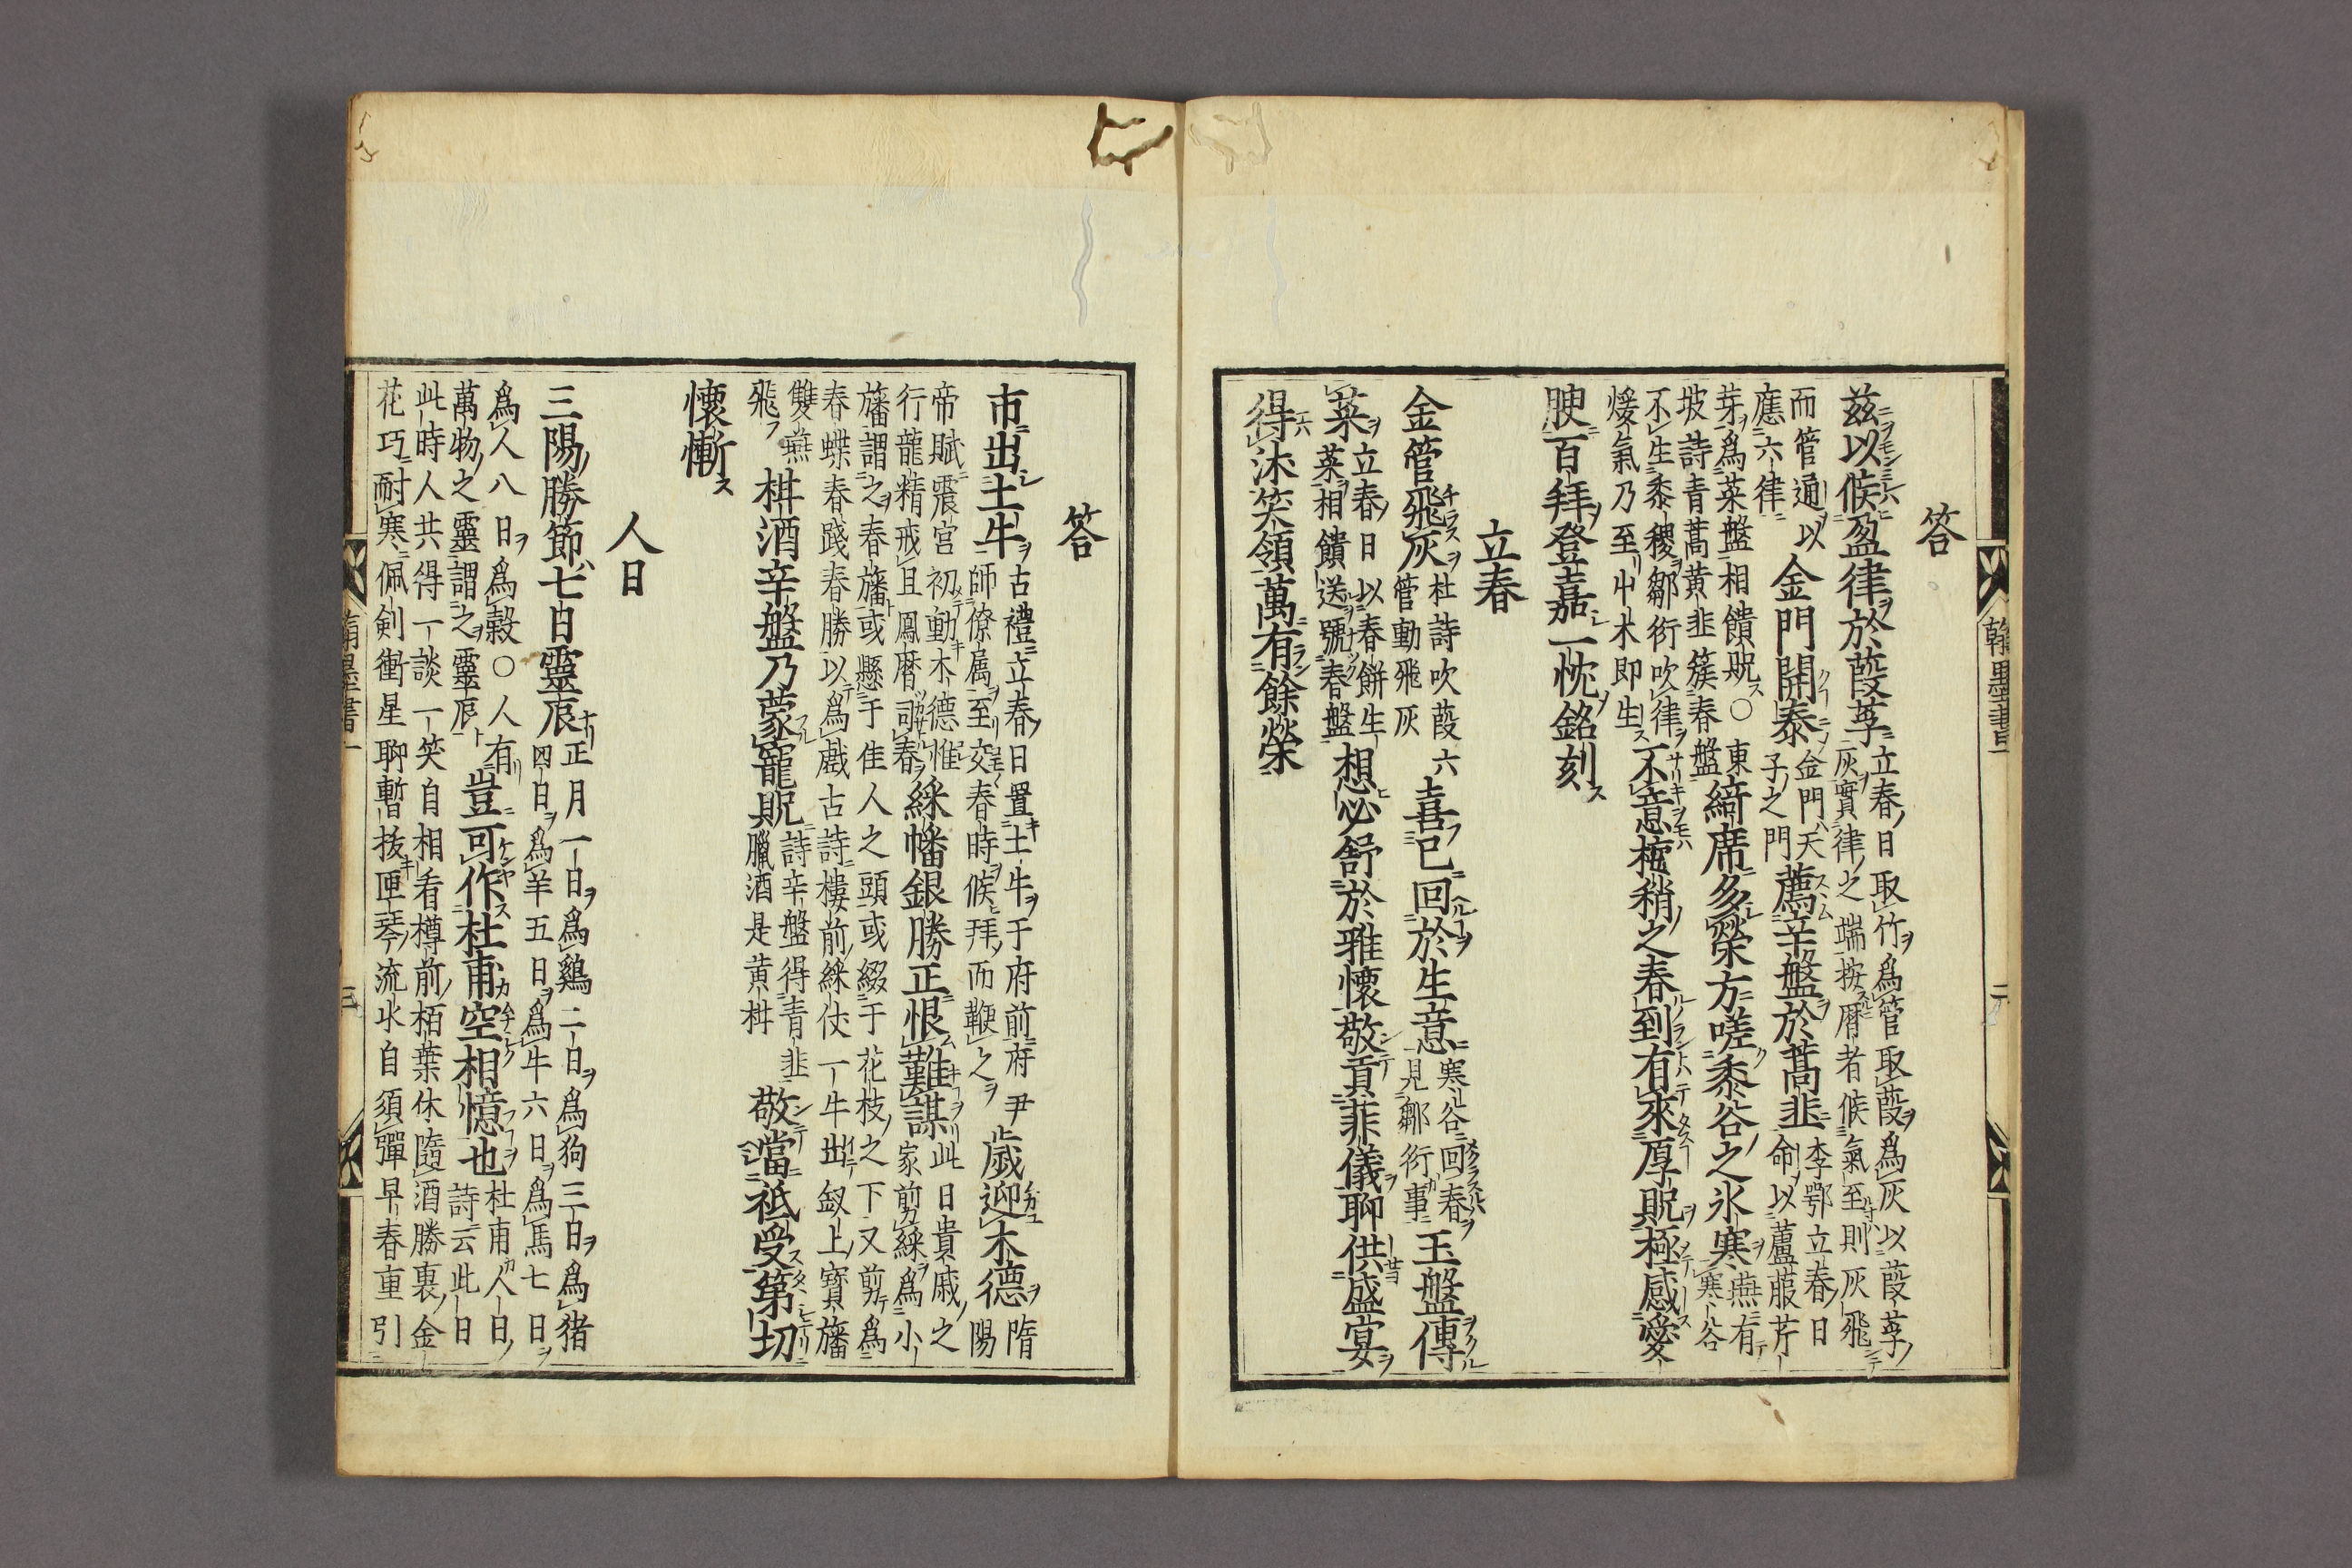 答
茲以候盈律於葭莩立春日取竹爲管取葭爲灰以葭莩
灰實律之端按曆者候氣至則灰飛
而管通以
應六律
金門開泰金門天
子之門
薦辛盤於蒿韭李鄂立春日
命以蘆菔芹
芽爲菜盤相饋貺○東
坡詩青蒿黃韭簇春盤
綺席多榮方嗟黍谷之氷寒燕有
寒谷
不生黍稷鄒衍吹律
煖氣乃至屮木即生
不意梅稍之春到有來厚貺極感愛
腴百拜登嘉一忱銘刻
立春
金管飛灰杜詩吹葭六
管動飛灰
喜已回於生意寒谷回春
見鄒衍事
玉盤傳
菜立春日以春餅生
菜相饋送號春盤
想必舒於雅懷敬貢菲儀聊供盛宴
得沐笑領萬有餘榮
翰墨書一
二
答
市出土牛古禮立春日置土牛于府前府尹
師僚属至交春時候拜而鞭之
歳迎木德隋
陽
帝賦震宮初動木德惟
行龍精戒且鳳曆司春
綵幡銀勝正恨難謀此日貴戚之
家剪綵爲小
旛謂之春旛或懸于佳人之頭或綴于花枝之下又剪爲
春蝶春踐春勝以爲戲古詩樓前綵仗一牛出釵上寶旛
雙燕
飛
椒酒辛盤乃蒙寵貺詩辛盤得青韭
臘酒是黄椒
敬當祗受第切
懷慚
人日
三陽勝節七日靈辰正月一日爲鷄二日爲狗三日爲猪
四日爲羊五日爲牛六日爲馬七日
爲人八日爲穀○人有
萬物之靈謂之靈辰
豈可作杜甫空相憶也杜甫人日
詩云此日
此時人共得一談一笑自相看樽前栢葉休隨酒勝裏金
花巧耐寒佩剣衝星聊暫抜匣琴流水自須彈早春重引
翰墨書一
三